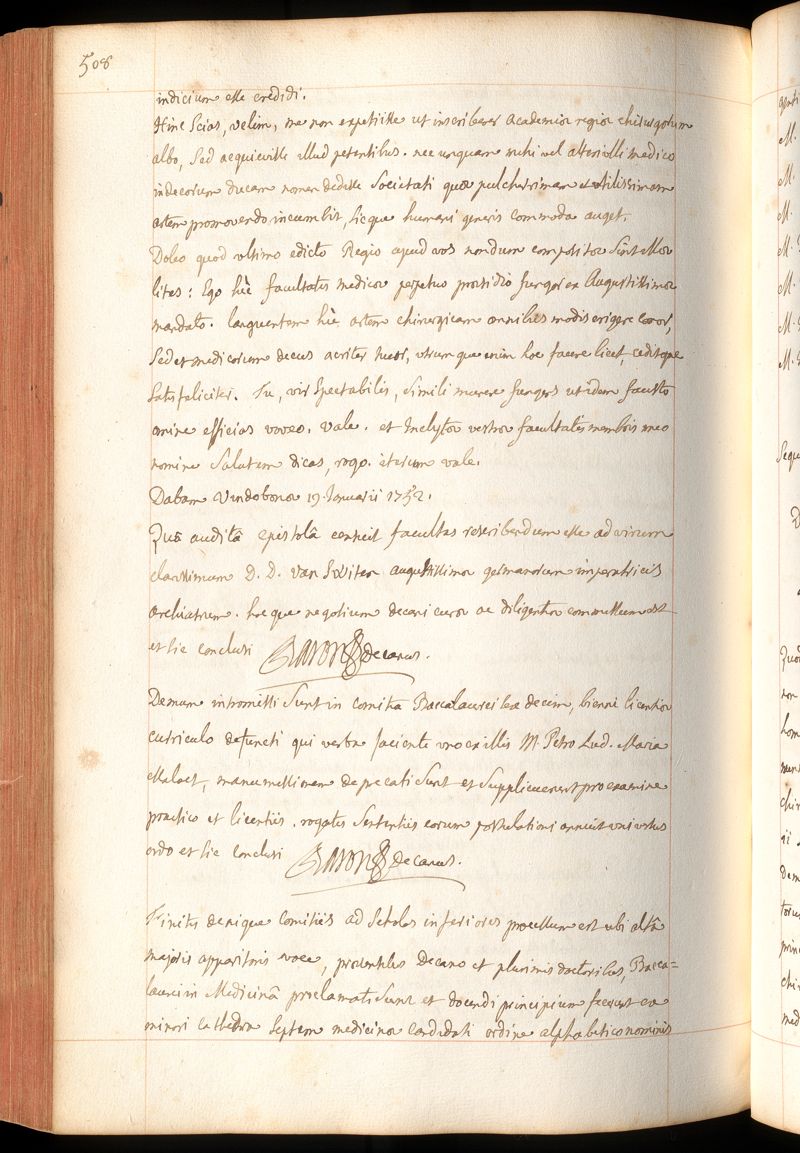 508
indicium esse credidi.
Hinc Scias, velim, me non expetiisse ut inscriberer Academiæ regiæ chirurgorum
albo, Sed acquievisse illud petentibus. nec unquam mihi vel alteri ulli medico
indecorum ducam nomen dedisse Societati quæ pulcherrimam et utilissimam
artem promovendo incumbit, sicque humani generis commoda auget.
Doleo quod ultimo edicto Regio apud vos nondum compositæ sint
lites: Ego hîc facultatis medicæ perpetuo præsidio fungor ex Augustissimæ
mandato. languentem hîc artem chirurgicam omnibus modis erigere conor,
Sed et medicorum decus acriter tueor, utrumque enim hoc facere licet, ceditque
Satis feliciter. Tu, vir Spectabilis, simili munere fungens ut idem fausto
omine efficias voveo. Vale. et Inclytæ vestræ facultatis membris meo
nomine Salutem dicas, rogo. iterum vale.
Dabam Vindobonæ 19. Januarii 1752.
Quâ auditâ epistolâ censuit facultas rescribendum esse ad virum
clarissimum D. D. Van Switen augustissimæ germanorum imperatricis
archiatrum. hocque negotium decani curæ ac diligentiæ commissum est
et sic conclusi BARON decanus.
Demum intromissi Sunt in comitia Baccalaurei sex decim, biennii licentiæ
curriculo defuncti qui verba faciente uno ex illis M. Petro Lud. Maria
Maloet, manumissionem deprecati Sunt et Supplicuerunt pro examine
practico et licentiis. rogatis Sententiis eorum postulationi annuit universus
ordo et sic conclusi BARON decanus.
Finitis denique Comitiis ad Scholas inferiores processum est ubi altâ
majoris apparitoris voce, præsentibus Decano et plurimis doctoribus, Bacca=
laurei in Medicinâ proclamati Sunt et docendi principium fecerunt ex
minori cathedra Septem medicinæ candidati ordine alphabetico nominis